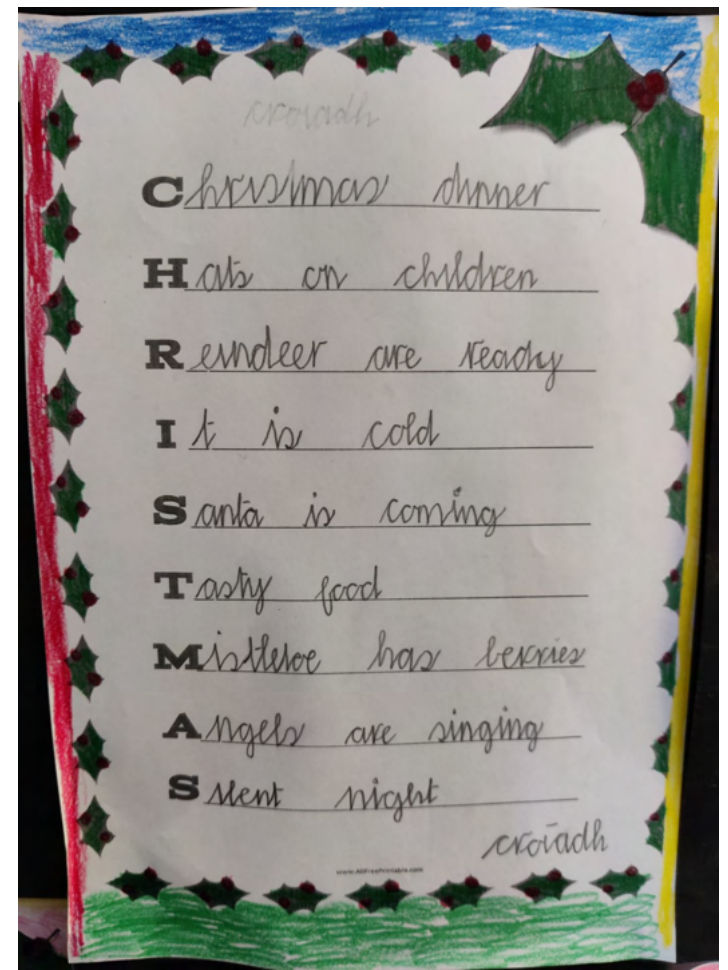 croiadh
Christmas dinner
Hats on children
Reindeer are ready
It is cold
Santa is coming
Tasty food
Mistletoe has berries
Angels are singing
Silent night
croíadh
www.AllFreePrintable.com